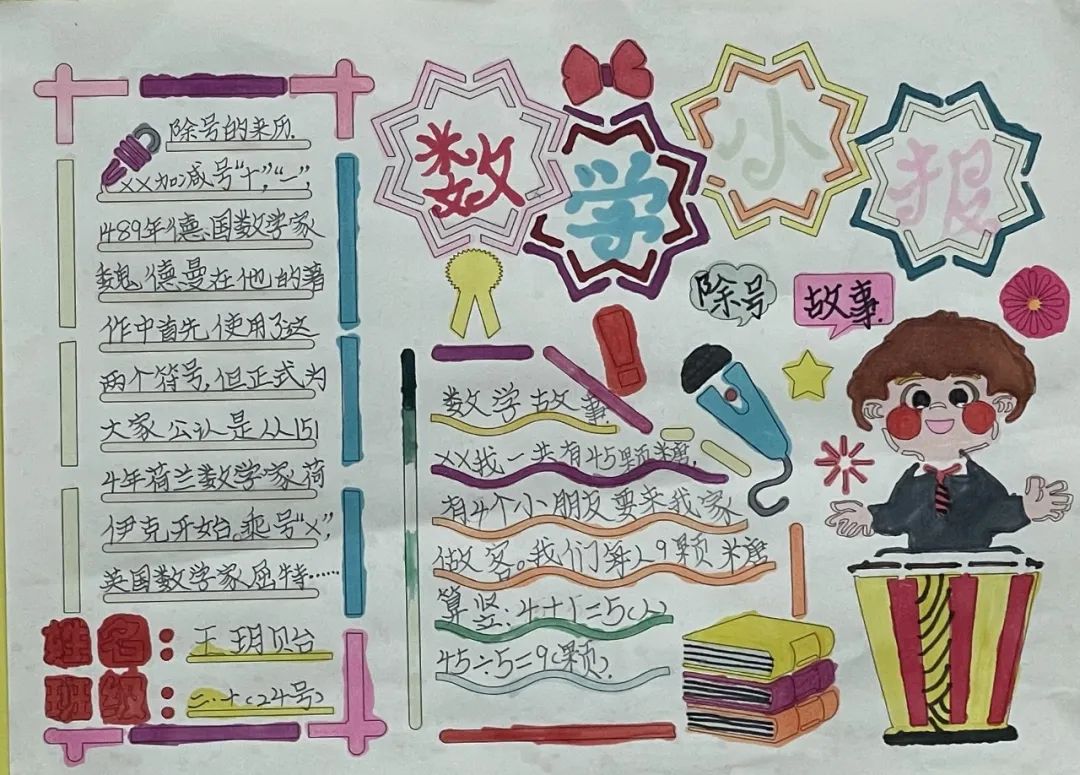 数学小报
除号的来历.
xx加减号“十”,“一”,
1489年德国数学家
魏德曼在他的著
作中首先使用了这
两个符号,但正式为
大家公认是从151
4年荷兰数学家荷
伊克开始。乘号“x”,
英国数学家屈特……
姓名:王玥贻
班级:二.十(24号)
除号
故事.
数学故事.
xx我一共有45颗糖,
有4个小朋友要来我家
做客。我们每人9颗糖
算竖:4+1=5(人)
45÷5=9(颗).